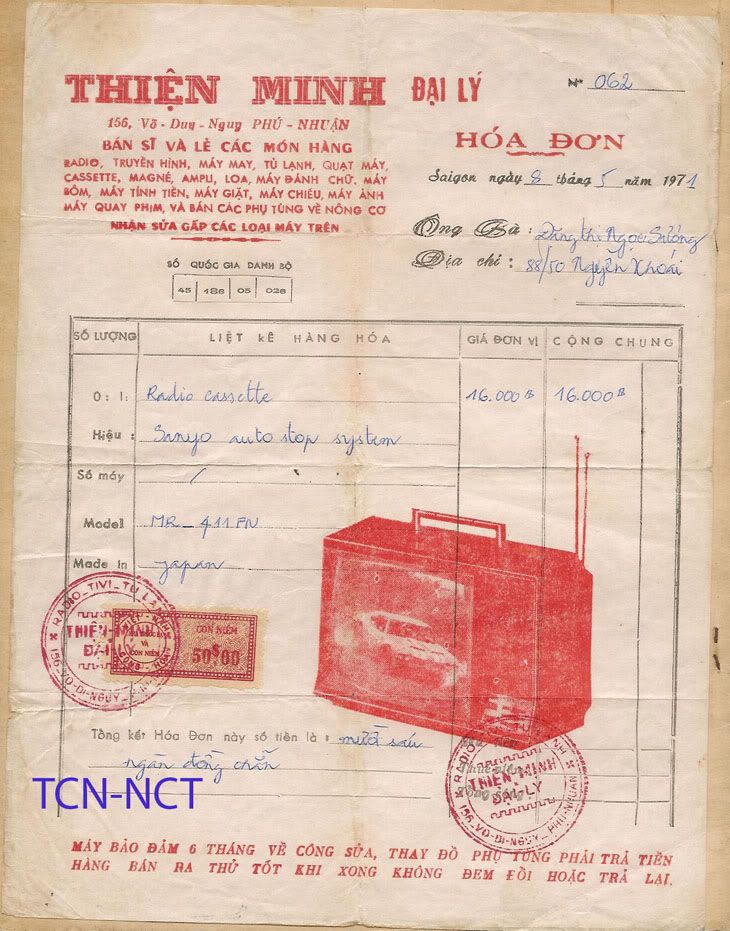 THIỆN MINH ĐẠI LÝ
Nº 062
156, Võ - Duy - Nguy PHÚ - NHUẬN
BÁN SĨ VÀ LẺ CÁC MÓN HÀNG
RADIO, TRUYỀN HÌNH, MÁY MAY, TỦ LẠNH, QUẠT MÁY,
CASSETTE, MAGNÉ, AMPU, LOA, MÁY ĐÁNH CHỮ, MÁY
BƠM, MÁY TÍNH TIỀN, MÁY GIẶT, MÁY CHIẾU, MÁY ẢNH
MÁY QUAY PHIM, VÀ BÁN CÁC PHỤ TÙNG VỀ NÔNG CƠ
NHẬN SỬA GẤP CÁC LOẠI MÁY TRÊN
HÓA ĐƠN
Saigon ngày 8 tháng 5 năm 1971
Ông Bà : Đặng thị Ngọc Sương
Địa chỉ : 88/50 Nguyễn Khoái
SỐ QUỐC GIA DANH BỘ
45 186 05 026
SỐ LƯỢNG LIỆT KÊ HÀNG HÓA GIÁ ĐƠN VỊ CỘNG CHUNG
0 : 1 : Radio cassette 16.000đ 16.000đ
Hiệu : Sanyo auto stop system
Số máy /
Model MR_411FN
Made In japan
RADIO_TIVI_TỦ LẠNH
THIỆN-MINH
ĐẠI
156_VO-DI-NGUY
CON NIÊM
50$00
Tổng kết Hóa Đơn này số tiền là : mười sáu
ngàn đồng chẵn
THIỆN-MINH
ĐẠI-LÝ
156_VO-DI-NGUY_PHU-NHUAN
TCN-NCT
MÁY BẢO ĐẢM 6 THÁNG VỀ CÔNG SỬA, THAY ĐỒ PHỤ TÙNG PHẢI TRẢ TIỀN
HÀNG BÁN RA THỬ TỐT KHI XONG KHÔNG ĐEM ĐỔI HOẶC TRẢ LẠI.